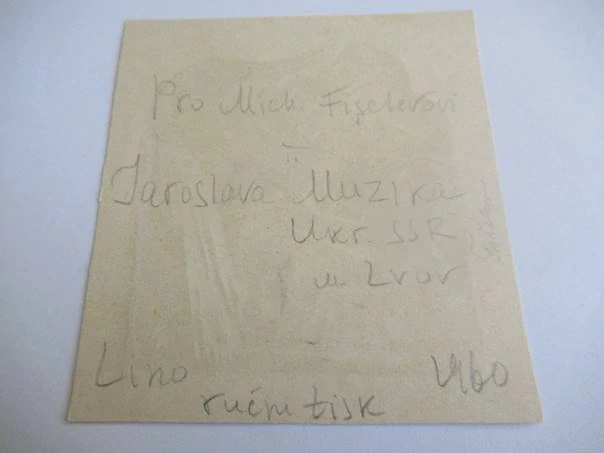 Pro Mich. Fišerovi
Jaroslava Muzika
Ukr. SSR
Lvov
Lino
1960
ruční tisk